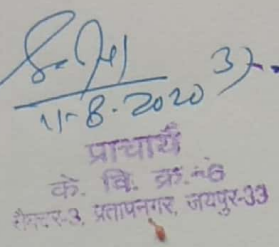 11-8-2020
प्राचार्य
के. वि. क्र.-3
सैक्टर-3, प्रतापनगर, जयपुर-33